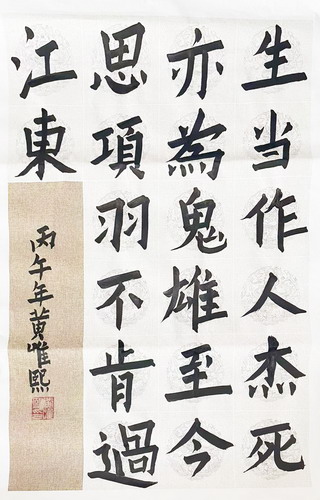 生当作人杰死
亦為鬼雄至今
思項羽不肯過
江東
丙午年黄唯熙